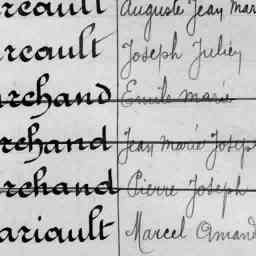 réault Auguste Jean Mar
réault Joseph Julien
rchand Emile Marie
rchand Jean Marie Josep
rchand Pierre Joseph
ariault Marcel Amand